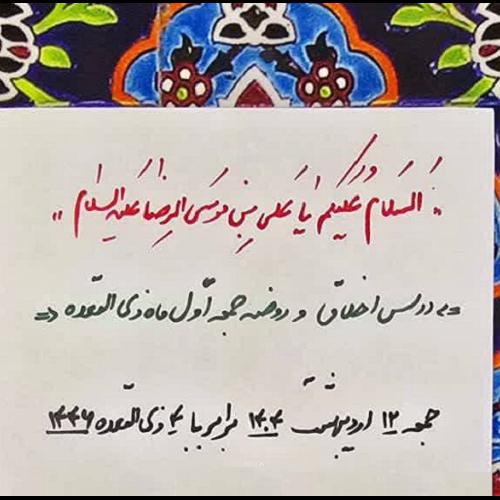 "السَلامُ عَلَیکُم یا عَلی بنِ موسَی الرِضا عَلیهِ السَلام"
درس اخلاق و روضه جمعه اوّل ماه ذی القعده
جمعه ۱۲ اردیبهشت ۱۴۰۴ برابر با ۴ ذی القعده ۱۴۴۶